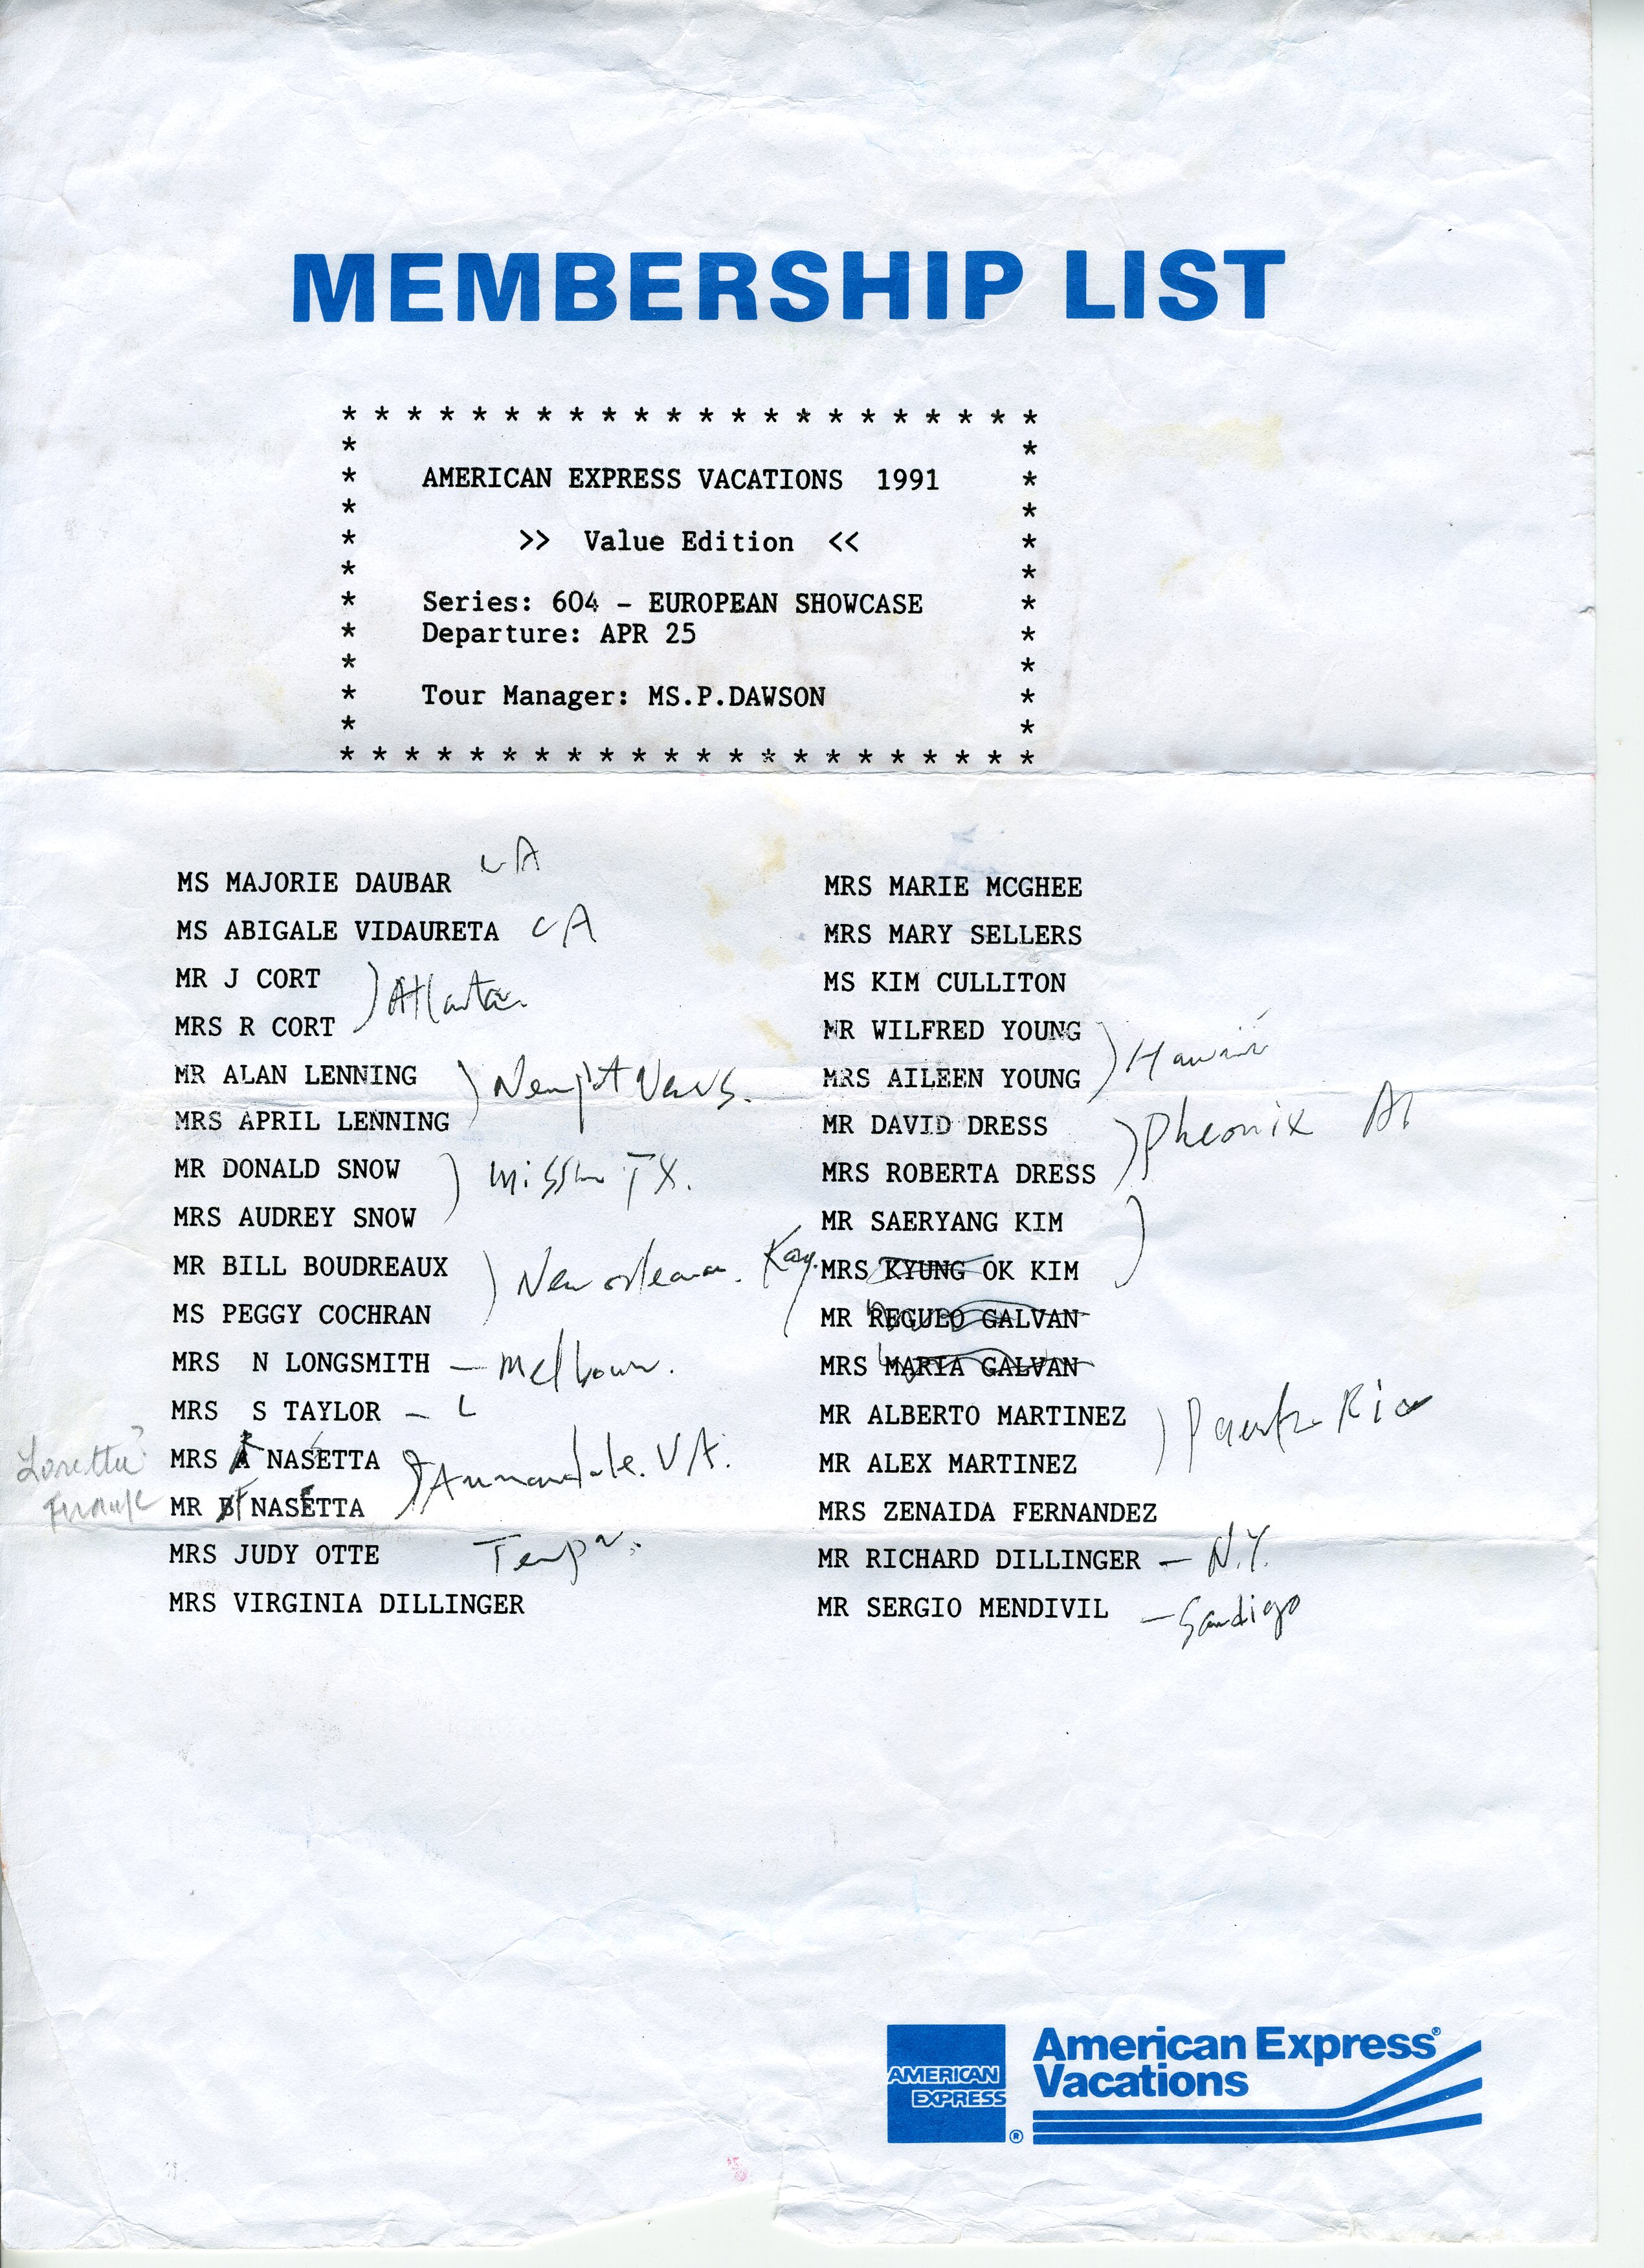 MEMBERSHIP LIST
* * * * * * * * * * * * * * * * * * * * * *
* *
* AMERICAN EXPRESS VACATIONS 1991 *
* *
* >> Value Edition << *
* *
* Series: 604 - EUROPEAN SHOWCASE *
* Departure: APR 25 *
* *
* Tour Manager: MS.P.DAWSON *
* *
* * * * * * * * * * * * * * * * * * * * * *
MS MAJORIE DAUBAR CA
MS ABIGALE VIDAURETA CA
MR J CORT
) Atlanta
MRS R CORT
MR ALAN LENNING
)
MRS APRIL LENNING
MR DONALD SNOW
) TX.
MRS AUDREY SNOW
MR BILL BOUDREAUX
) New orleans.
MS PEGGY COCHRAN
MRS N LONGSMITH —
MRS S TAYLOR –
Loretta MRS NASETTA
) Annandale. VA.
Frank MR NASETTA
MRS JUDY OTTE
MRS VIRGINIA DILLINGER
MRS MARIE MCGHEE
MRS MARY SELLERS
MS KIM CULLITON
MR WILFRED YOUNG
) Hawaii
MRS AILEEN YOUNG
MR DAVID DRESS
) Pheonix
MRS ROBERTA DRESS
MR SAERYANG KIM
)
Kay. MRS KYUNG OK KIM
MR REGULO GALVAN
MRS MARIA GALVAN
MR ALBERTO MARTINEZ
) Rico
MR ALEX MARTINEZ
MRS ZENAIDA FERNANDEZ
MR RICHARD DILLINGER — N.Y.
MR SERGIO MENDIVIL — Sandigo
AMERICAN
EXPRESS
®
American Express®
Vacations